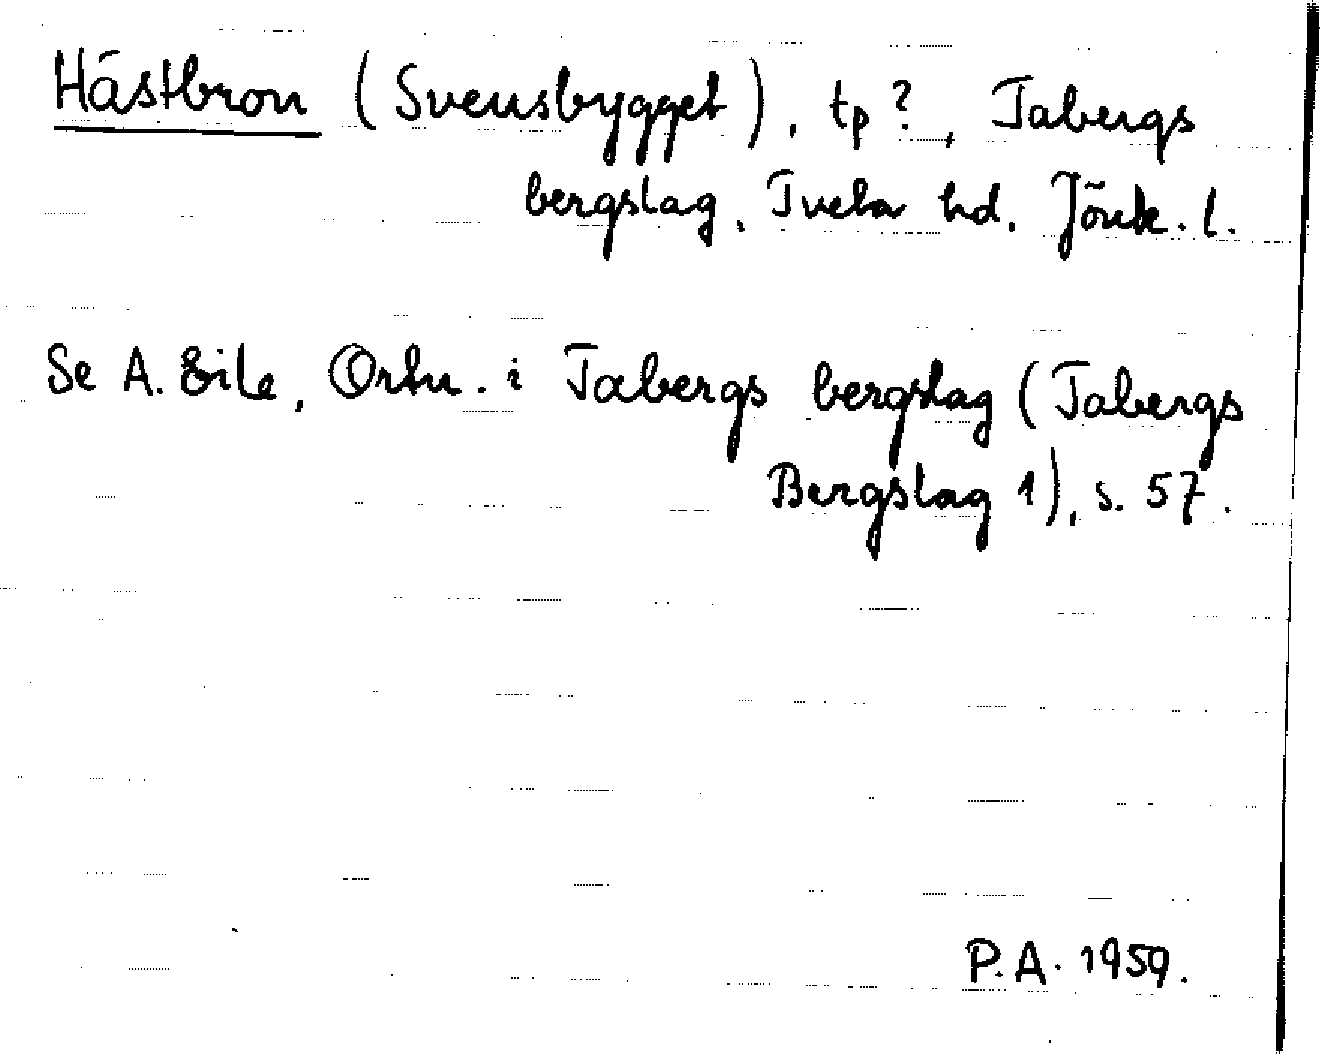 Hästbron (Svensbygget), tp?, Tabergs
bergslag, Tveta hd. Jönk. l.
Se A. Ejle, Ortn. i Tabergs bergslag (Tabergs
Bergslag 1), s. 57.
P.A. 1959.